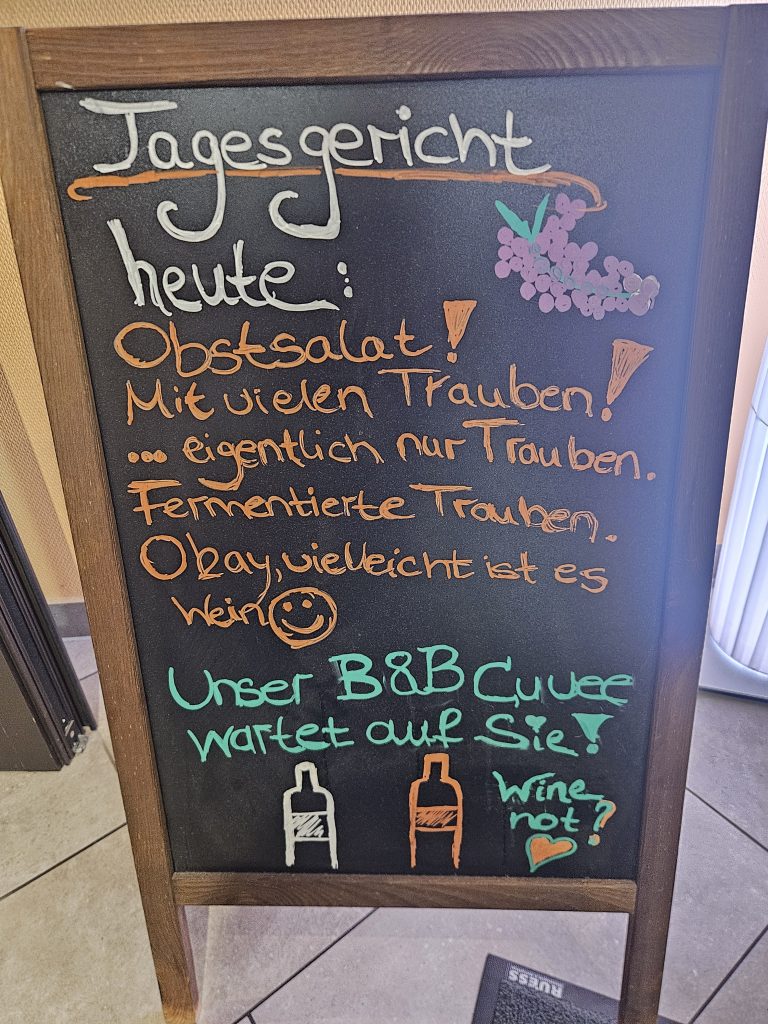 Tagesgericht
heute:
Obstsalat!
Mit vielen Trauben!
... eigentlich nur Trauben.
Fermentierte Trauben.
Okay, vielleicht ist es
Wein
Unser B&B Cuvee
wartet auf Sie!
Wine
not?
RUESS